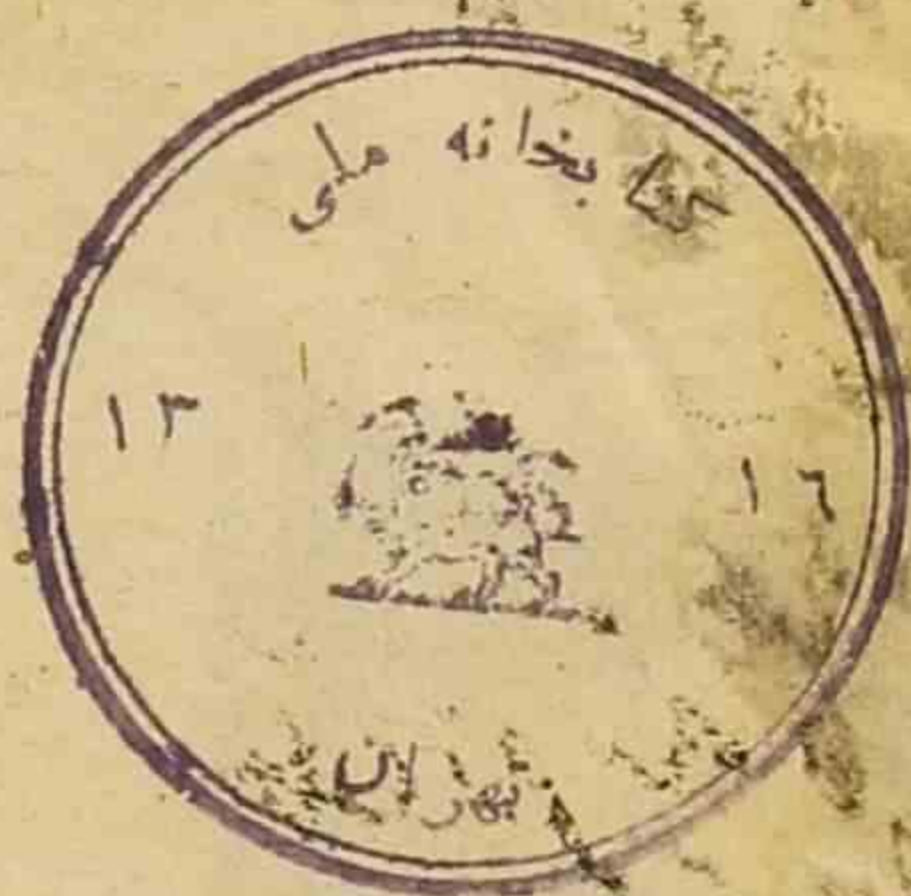 کتابخانه ملی
۱۳ ۱۶
تهران